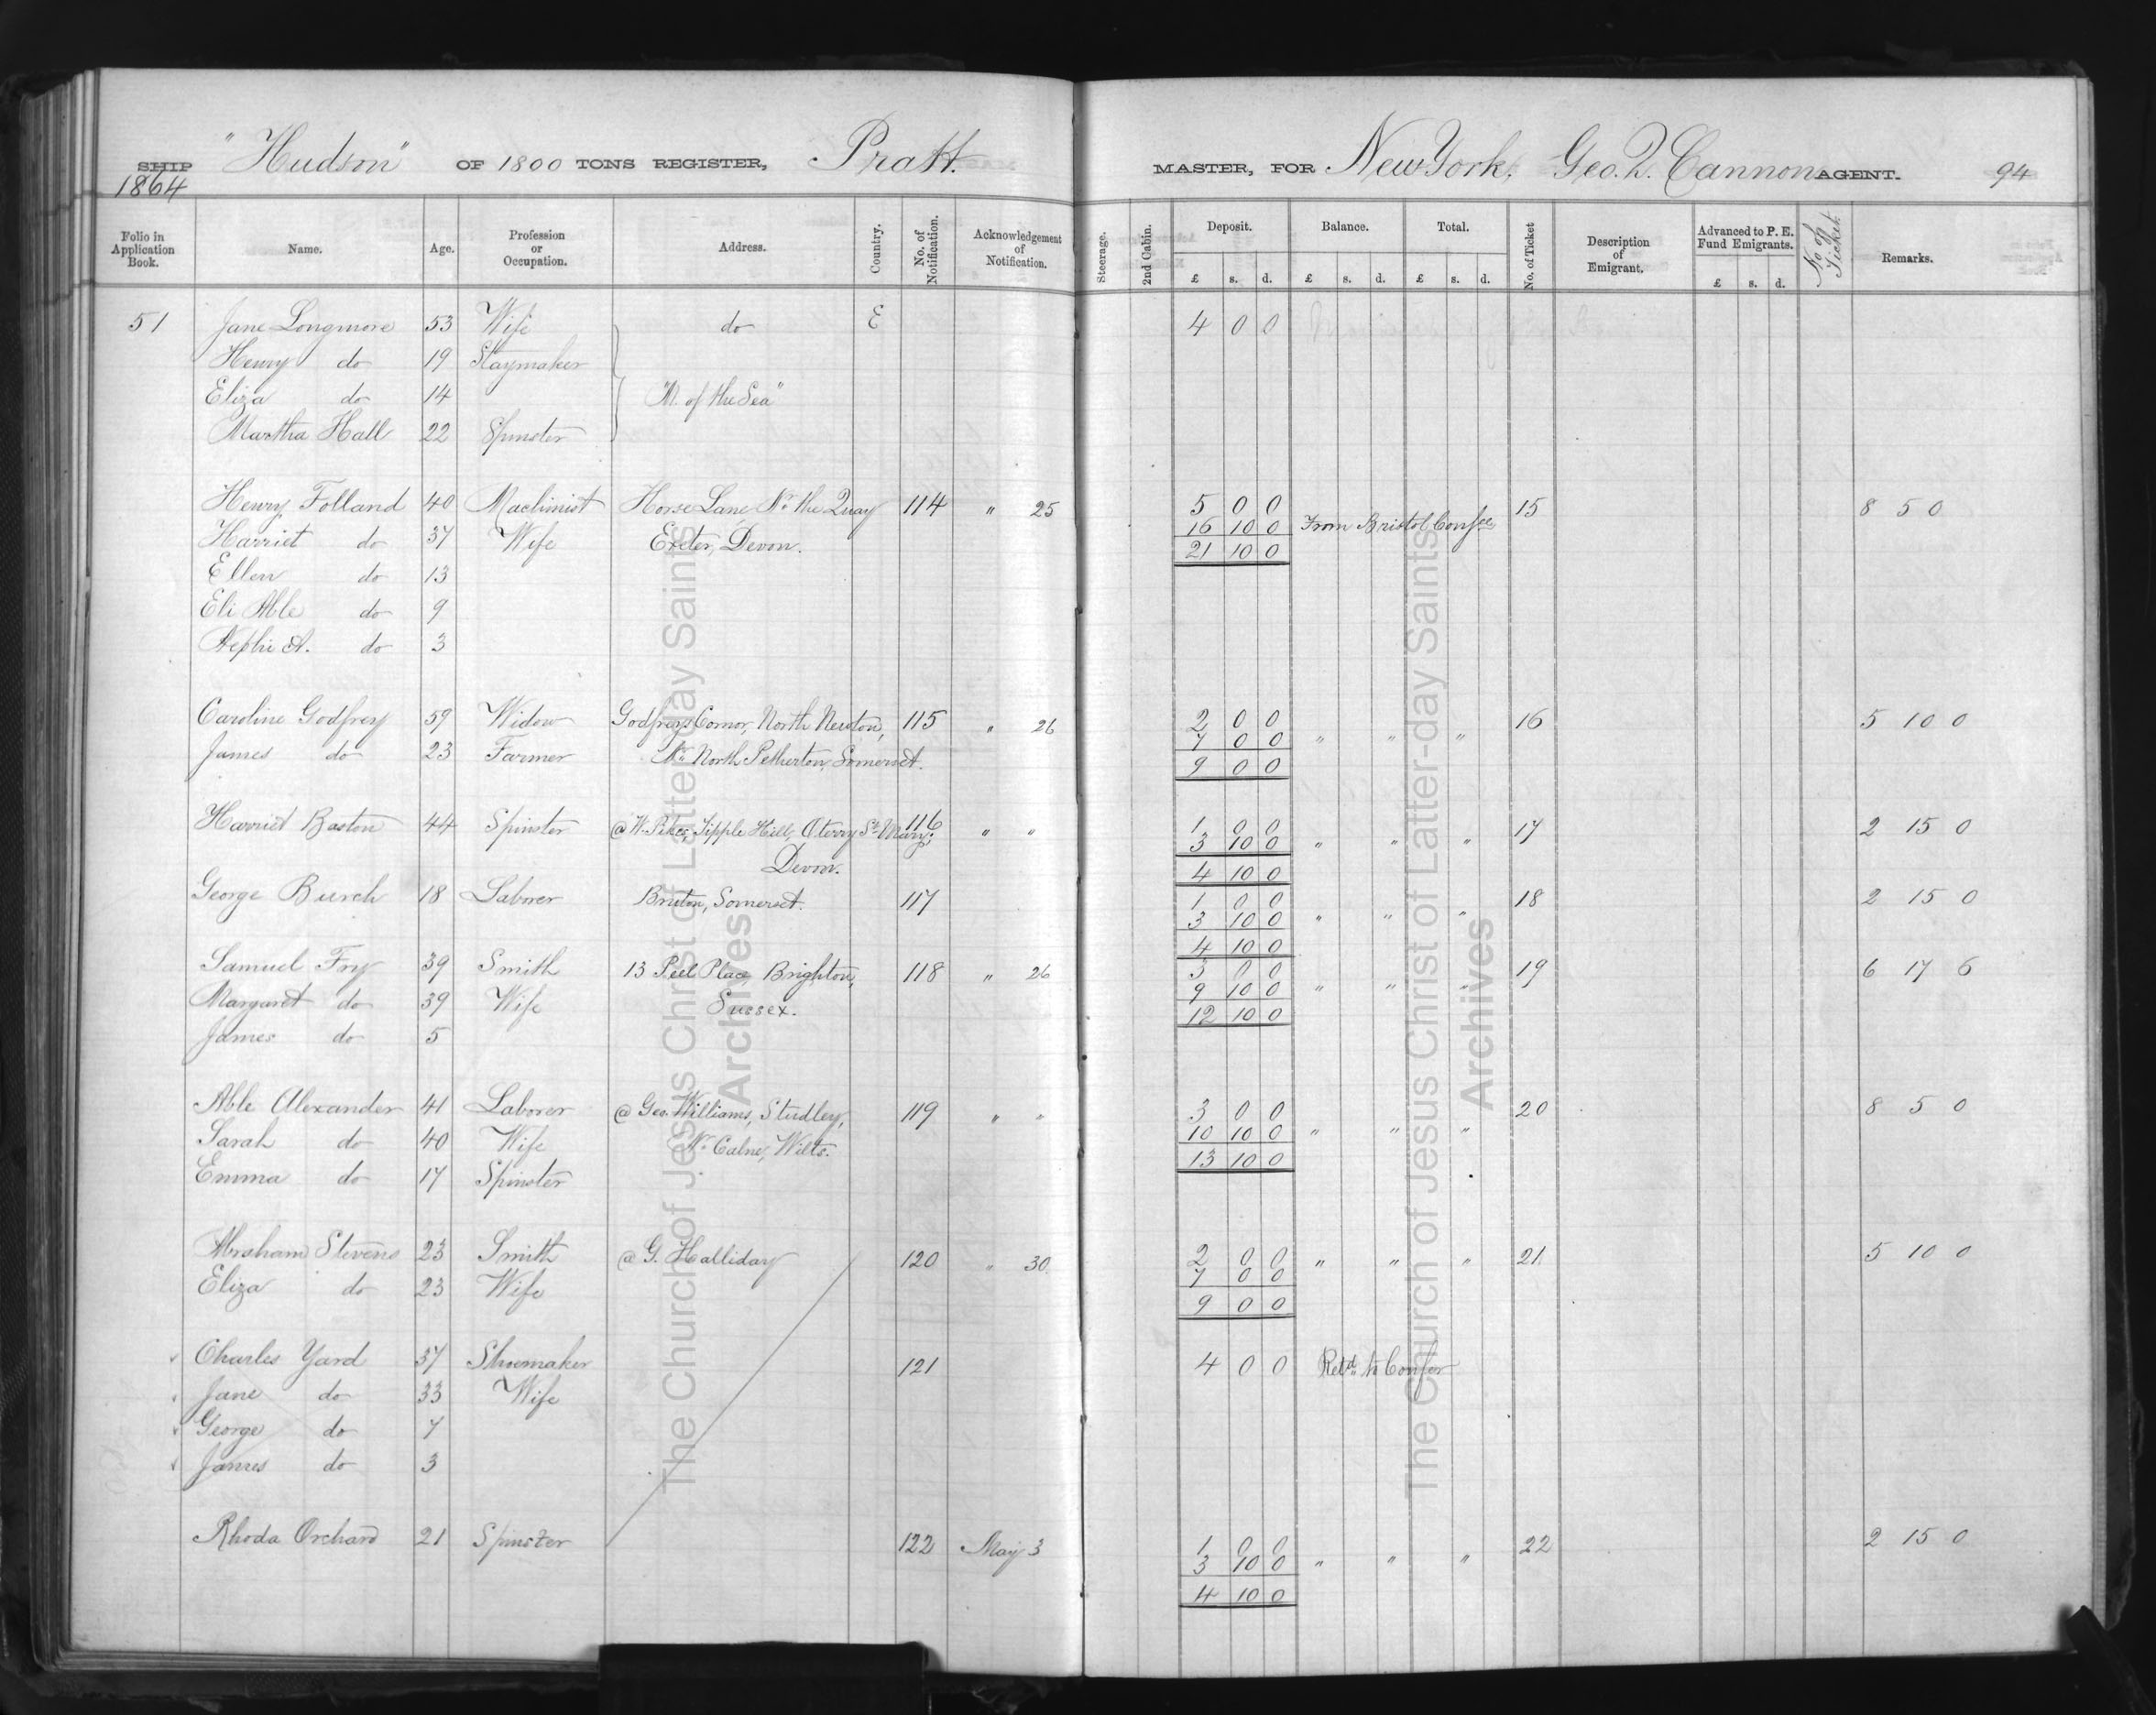 SHIP "Hudson" OF 1800 TONS REGISTER, Pratt. MASTER, FOR New York, Geo. Q. Cannon AGENT. 94
1864
Folio in Application Book. Name. Age. Profession or Occupation. Address. Country. No. of Notification. Acknowledgement of Notification. Steerage. 2nd Cabin. Deposit. Balance. Total. No. of Ticket Description of Emigrant. Advanced to P. E. Fund Emigrants. No of Ticket. Remarks.
£ s. d. £ s. d. £ s. d. £ s. d.
51 Jane Longmore 53 Wife do E 4 0 0
Henry do 19 Staymaker
Eliza do 14 "M. of the Sea"
Martha Hall 22 Spinster
Henry Folland 40 Machinist Horse Lane, Nr. the Quay 114 " 25 5 0 0 15 8 5 0
16 10 0 From Bristol Confce
Harriet do 37 Wife Exeter, Devon. 21 10 0
Ellen do 13
Eli Able do 9
Nephi A. do 3
Caroline Godfrey 59 Widow Godfreys Cornor, North Newton, 115 " 26 2 0 0 16 5 10 0
7 0 0 " " "
James do 23 Farmer Nr. North Petherton, Somerset. 9 0 0
Harriet Baston 44 Spinster @ W. Pikes, Tipple Hill, Oterry St. Mary, 116 " " 1 0 0 17 2 15 0
3 10 0 " " "
Devon. 4 10 0
George Burch 18 Laborer Bruton, Somerset. 117 1 0 0 18 2 15 0
3 10 0 " " "
4 10 0
Samuel Fry 39 Smith 13 Peel Place, Brighton, 118 " 26 3 0 0 19 6 17 6
9 10 0 " " "
Margaret do 39 Wife Sussex. 12 10 0
James do 5
Able Alexander 41 Laborer @ Geo. Williams, Studley, 119 " " 3 0 0 20 8 5 0
10 10 0 " " "
Sarah do 40 Wife Nr. Calne, Wilts. 13 10 0
Emma do 17 Spinster
Abraham Stevens 23 Smith @ G. Halliday 120 " 30 2 0 0 " " " 21 5 10 0
7 0 0
Eliza do 23 Wife 9 0 0
Charles Yard 37 Shoemaker 121 4 0 0 Retd. to Confer
Jane do 33 Wife
George do 7
James do 3
Rhoda Orchard 21 Spinster 122 May 3 1 0 0 22 2 15 0
3 10 0 " " "
4 10 0
The Church of Jesus Christ of Latter-day Saints
Archives
The Church of Jesus Christ of Latter-day Saints
Archives